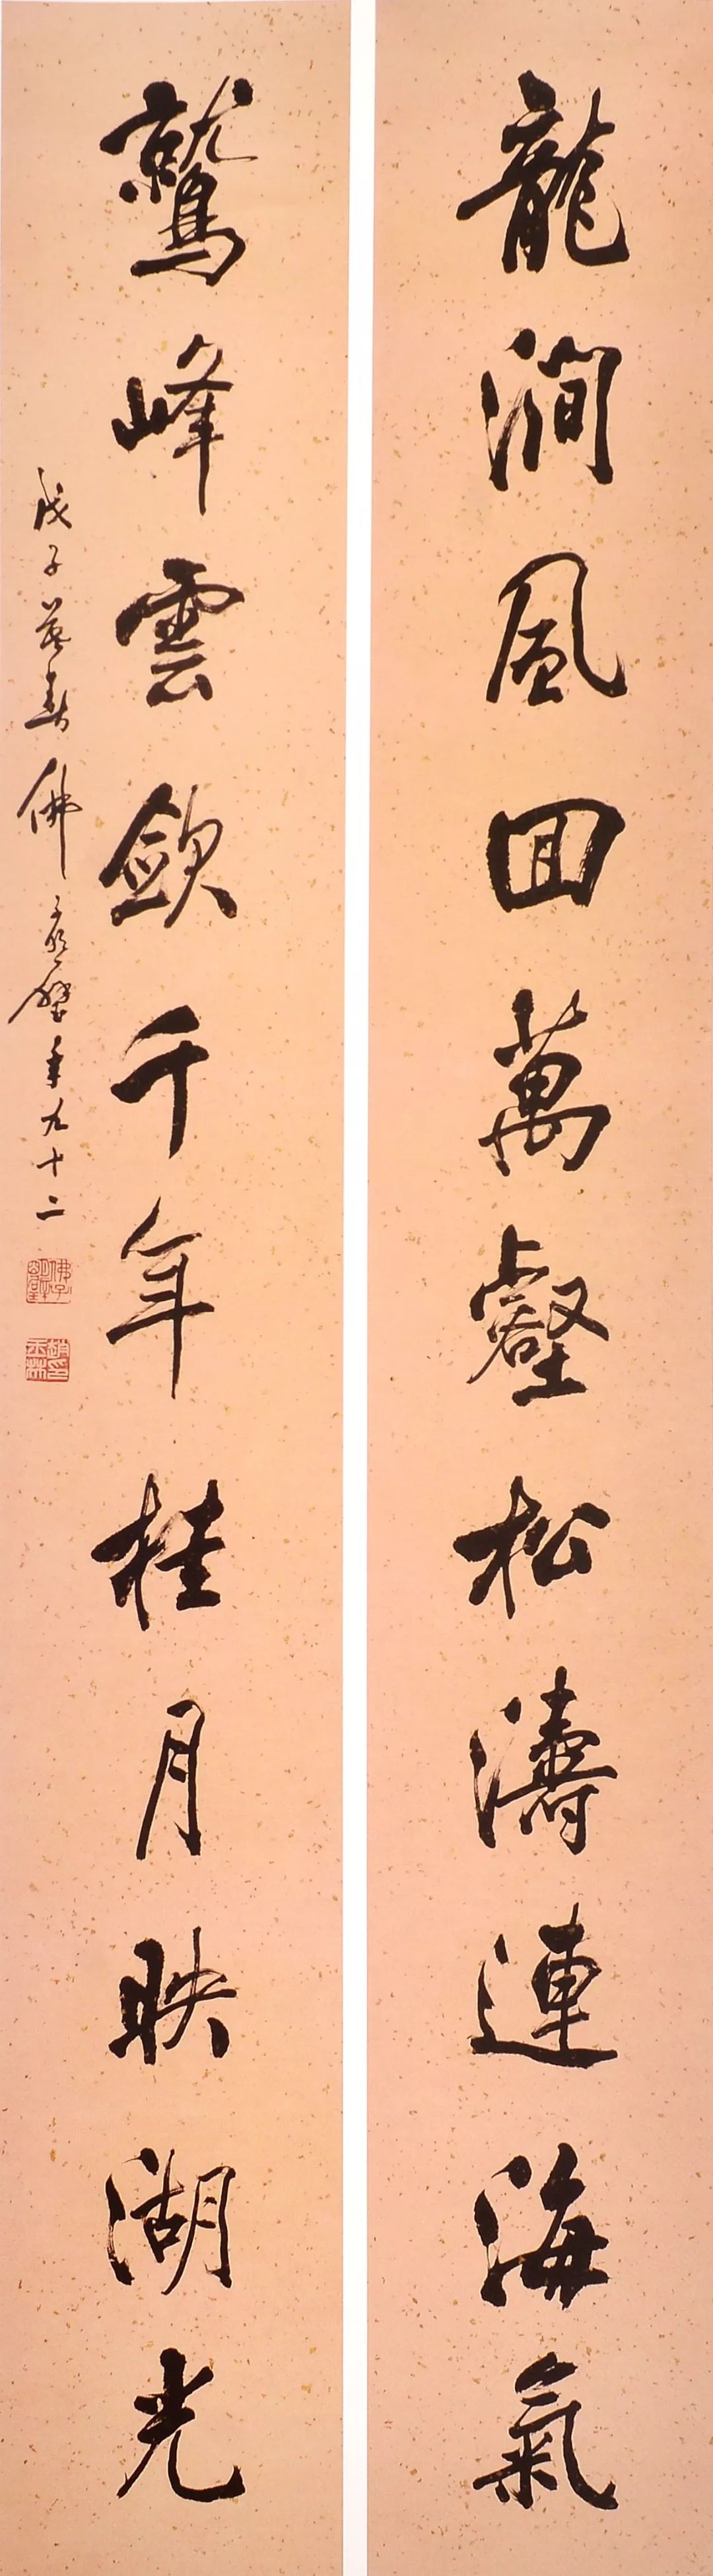 龍澗風回萬壑松濤連海氣
鷲峰雲斂千年桂月映湖光
戊子暮春佛子明璧年九十二